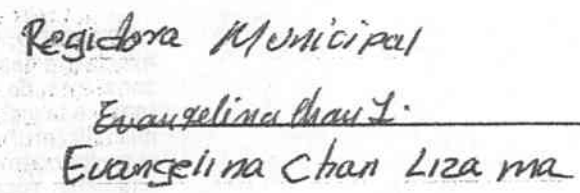 Regidora Municipal
Evangelina Chan L.
Evangelina Chan Lizama